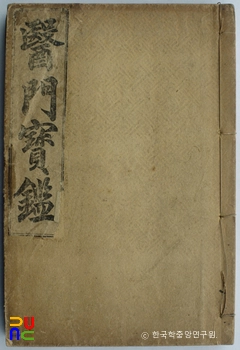 醫門寶鑑
© 한국학중앙연구원